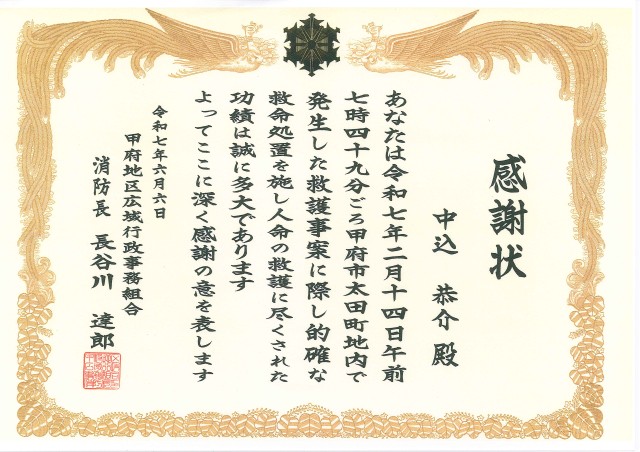 感謝状
中込 恭介 殿
あなたは令和七年二月十四日午前
七時四十九分ごろ甲府市太田町地内で
発生した救護事案に際し的確な
救命処置を施し人命の救護に尽くされた
功績は誠に多大であります
よってここに深く感謝の意を表します
令和七年六月六日
甲府地区広域行政事務組合
消防長 長谷川 達郎